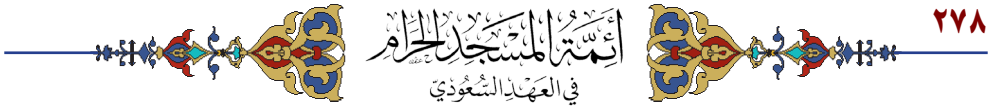 ٢٧٨
أَئِمَّةُ المَسْجِدِ الحَرَامِ
فِي العَهْدِ السُّعُودِيّ